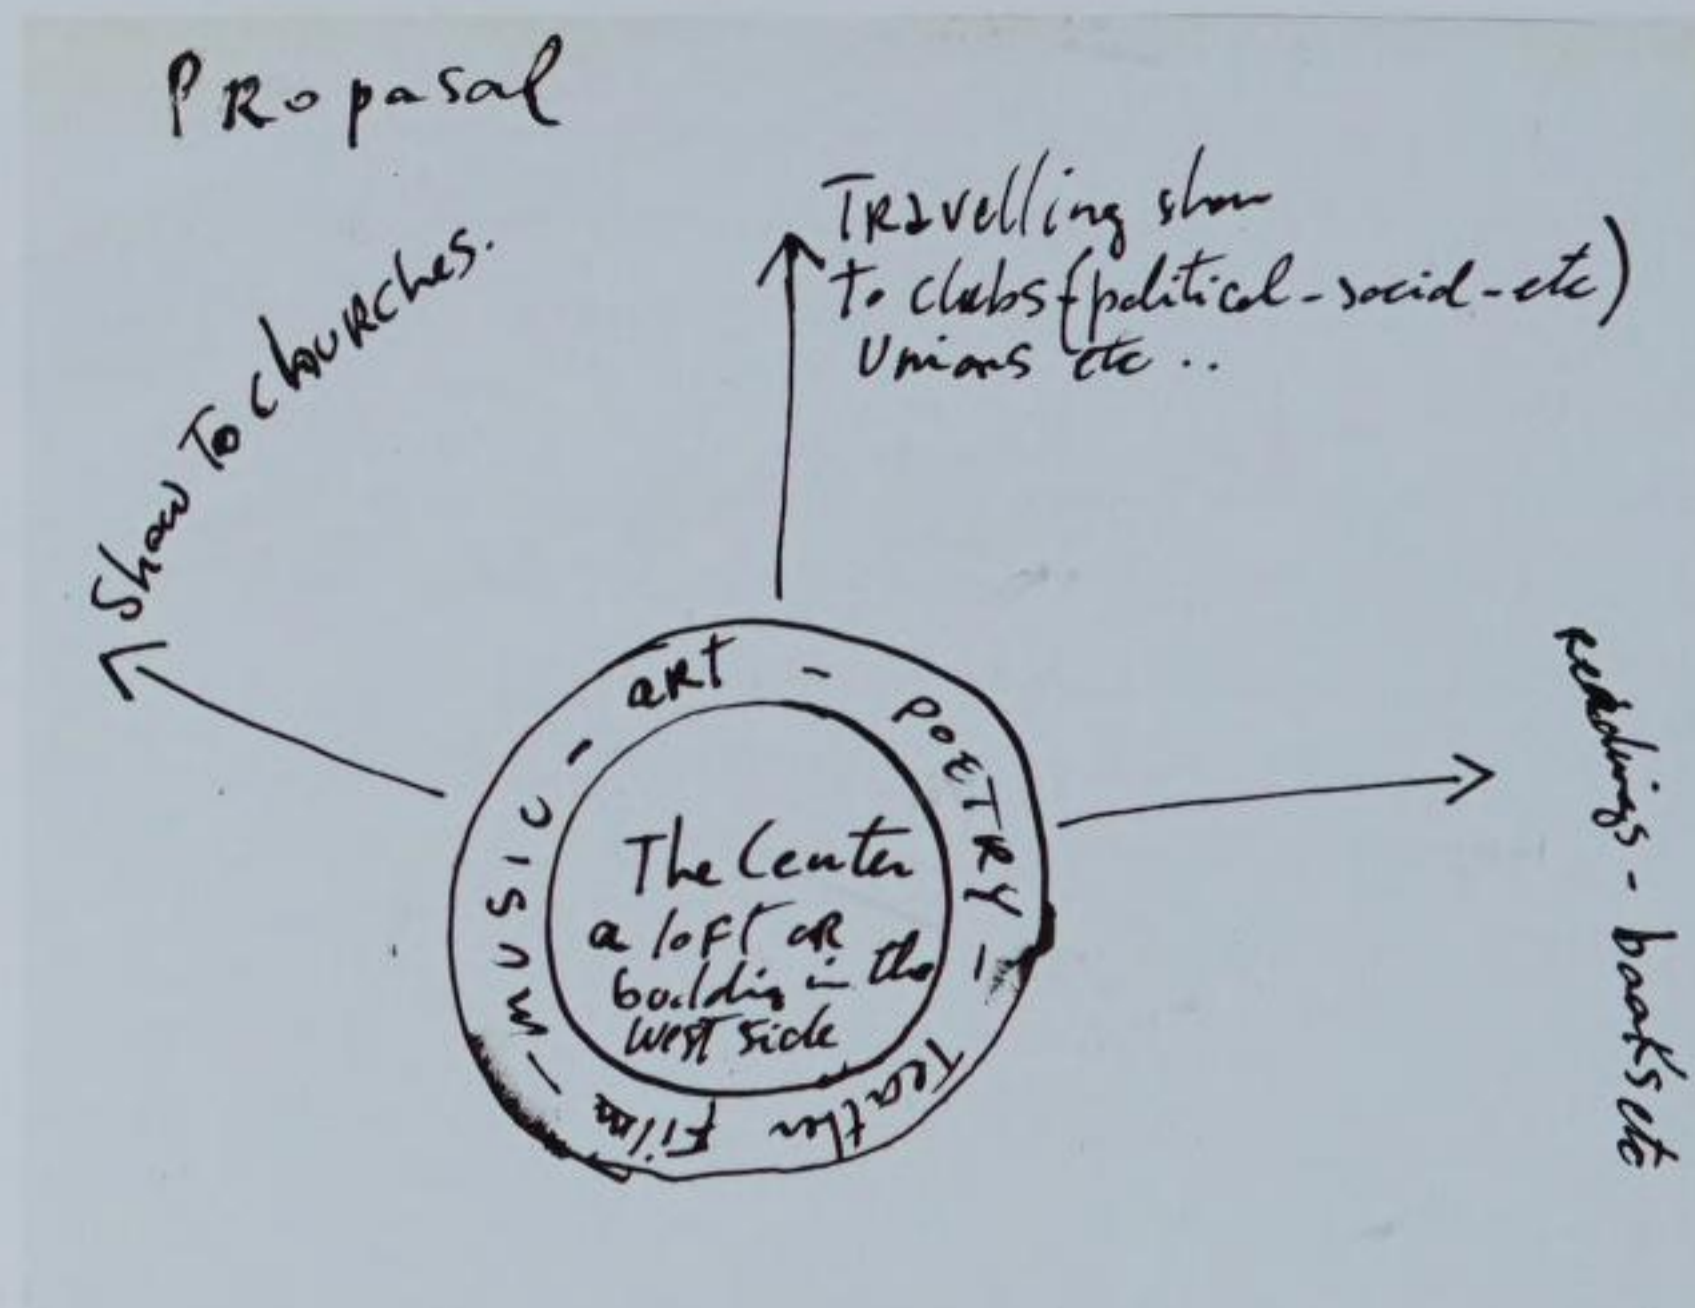 PRoposal
Show To chURches.
TRavelling show
To clubs (political - social - etc)
Unions etc ..
Readings - books etc
aRT - POETRY - Teather Film - MUSIC -
The Center
a loft oR
building in the
west side